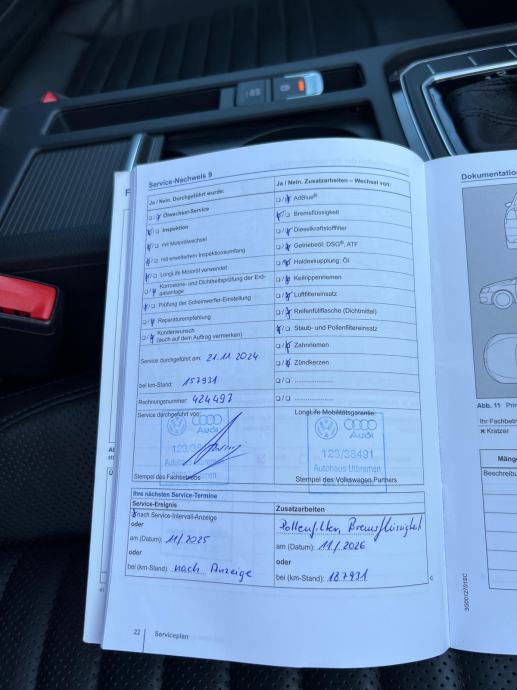 Service-Nachweis 9
Ja / Nein. Durchgeführt wurde:
Ölwechsel-Service
Inspektion
mit Motorölwechsel
mit erweitertem Inspektionsumfang
LongLife Motoröl verwendet
Korrosions- und Dichtheitsprüfung der Erd-
gasanlage
Prüfung der Scheinwerfer-Einstellung
Reparaturempfehlung
Kundenwunsch
(auch auf dem Auftrag vermerken)
Service durchgeführt am: 21.11.2024
bei km-Stand: 157931
Rechnungsnummer: 424497
Service durchgeführt von:
Audi
123/38491
Autohaus Utbremen
Stempel des Fachbetriebs
Ja / Nein. Zusatzarbeiten – Wechsel von:
AdBlue®
Bremsflüssigkeit
Dieselkraftstofffilter
Getriebeöl: DSG®, ATF
Haldexkupplung: Öl
Keilrippenriemen
Luftfiltereinsatz
Reifenfüllflasche (Dichtmittel)
Staub- und Pollenfiltereinsatz
Zahnriemen
Zündkerzen
LongLife Mobilitätsgarantie:
Audi
123/38491
Autohaus Utbremen
Stempel des Volkswagen Partners
Ihre nächsten Service-Termine
Service-Ereignis
nach Service-Intervall-Anzeige
oder
am (Datum): 11/2025
oder
bei (km-Stand): nach Anzeige
Zusatzarbeiten
Pollenfilter, Bremsflüssigkeit
am (Datum): 11/2026
oder
bei (km-Stand): 187931
22 Serviceplan
Dokumentation
Abb. 11
Ihr Fachbetrieb
Kratzer